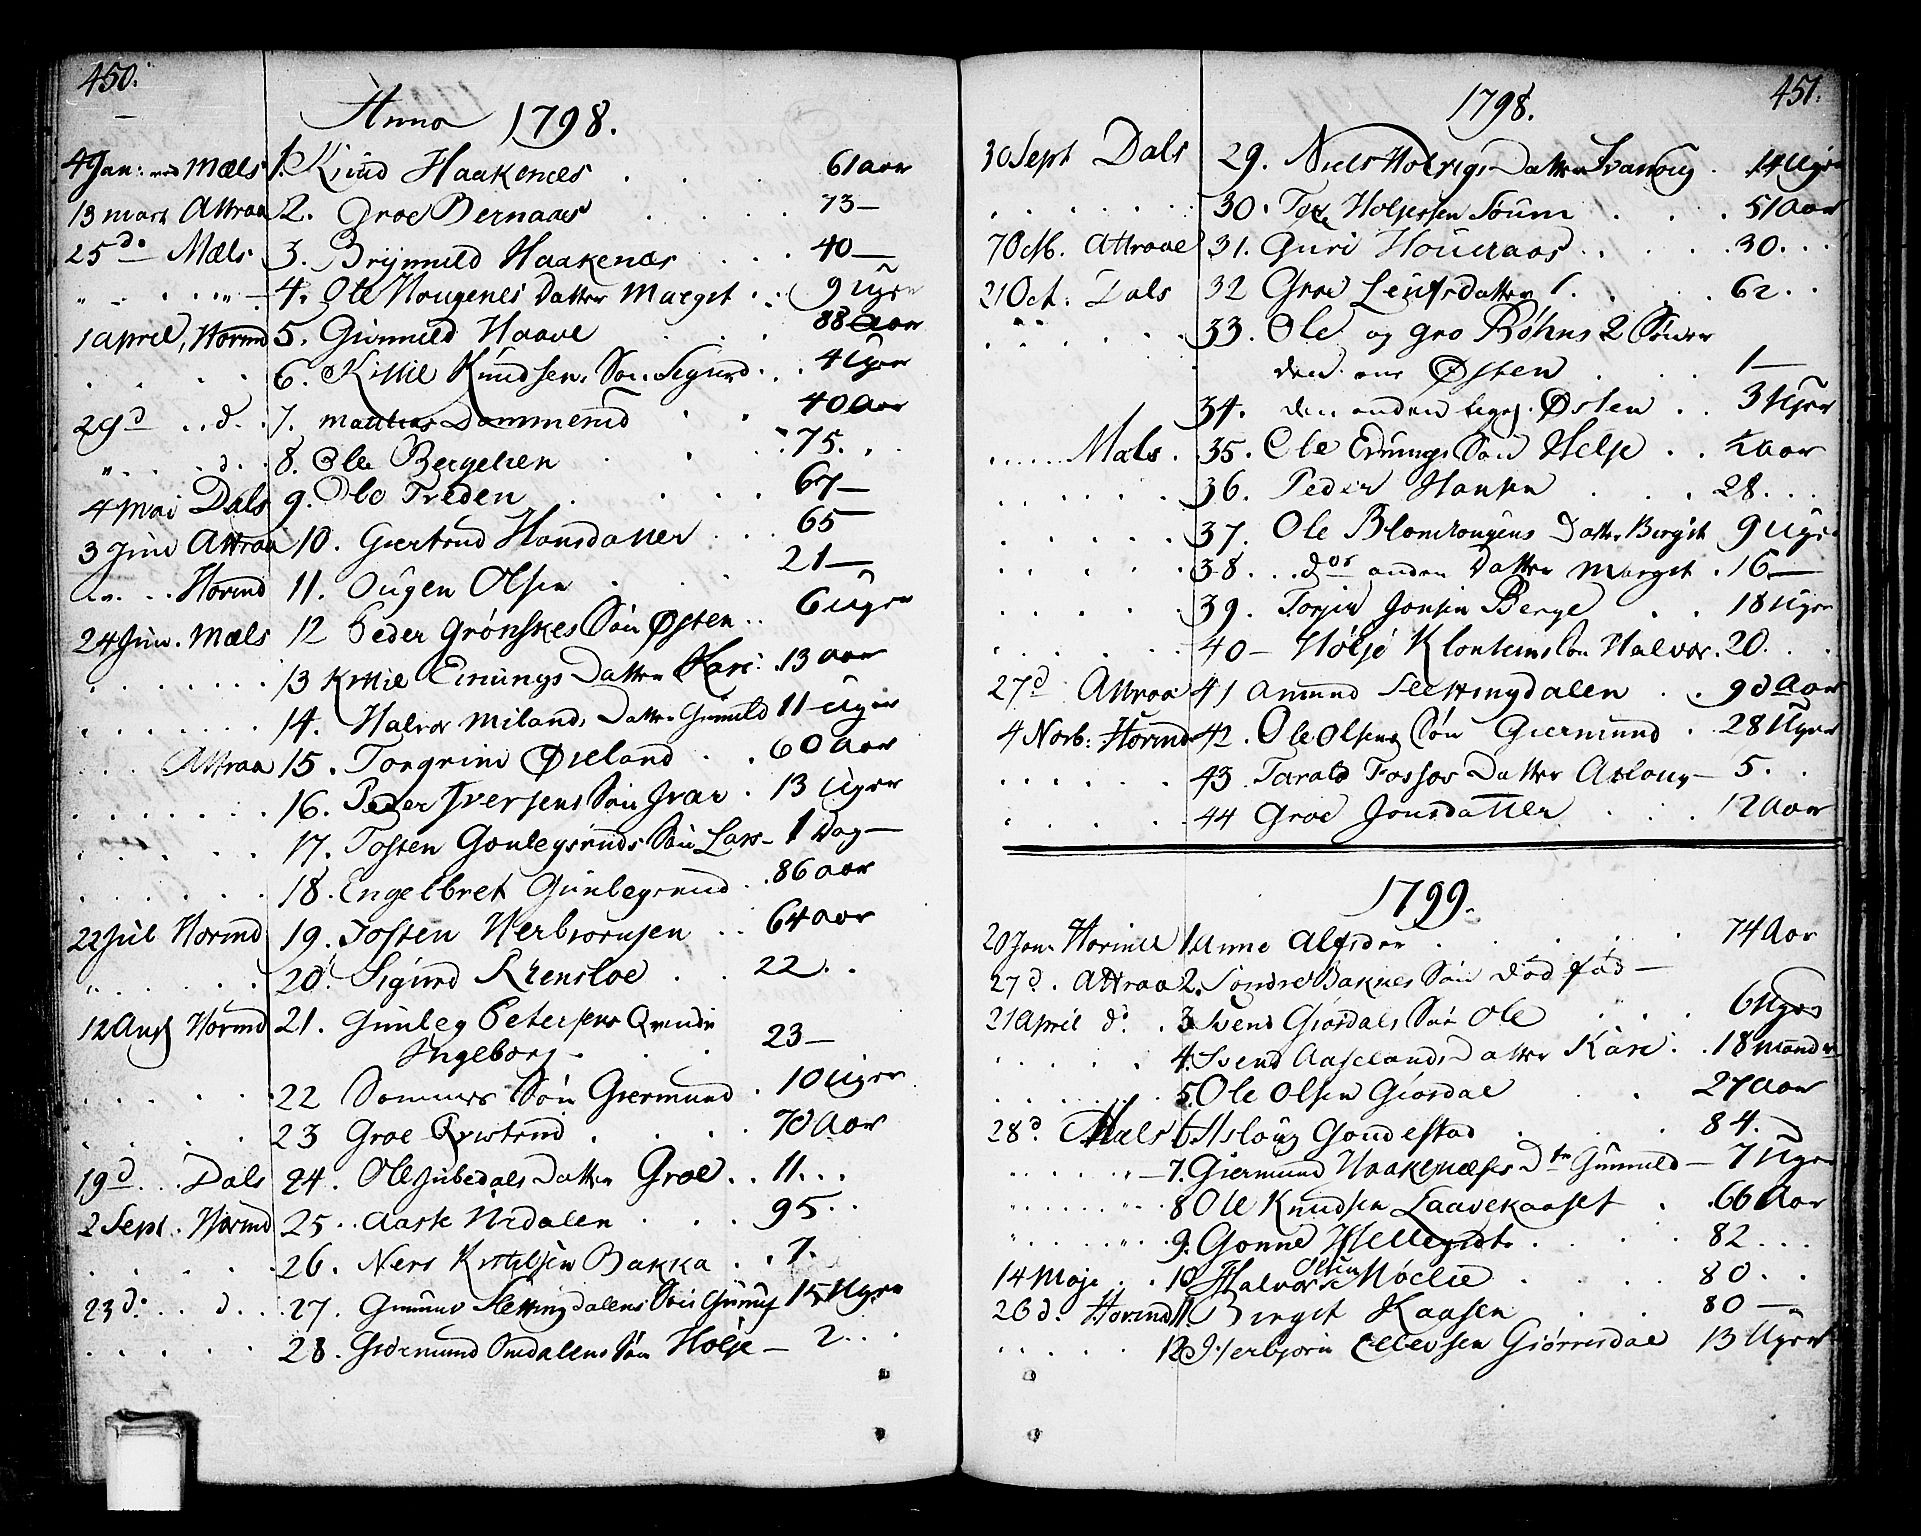 450.
Anno 1798.
4 Jan: ved Mæls 1. Knud Haakenæs . . . 61 aar
13 mart Attraa 2. Groe Bernaaes . . . . 73 —
25 do Mæls 3. Brÿnnild Haakenæs . . . 40 —
4. Ole Hougenes Datter Margit . . . 9 uger
1 april, Horind 5. Gunnild Haave . . . 88 Aar
6. Kittil Knudsens Søn Sigurd . . . 4 Uger
29 d . . d. 7. mattias Dammerud . . 40 Aar
d. 8. Ole Bergelien . . . 75. . .
4 Mai Dals 9. Ole Træden . . . . 67 —
3 Juni Attraa 10. Giertrud Hansdatter . . . 65 —
Horind 11. Ougen Olsen . . . . 21 —
24 Juni. Mæls 12 Peder Grønskes Søn Østen . . 6 uger
13 Kittil Enungs Datter Kari . 13 aar
14. Halvor Milands Datter Gunild 11 uger
Attraa 15. Torgrim Øieland . . . 60 Aar
16. Peder Iversens Søn Ivar . 13 Uger
17. Tosten Gonlegsruds Søn Lars — 1 Dag —
18. Engelbret Gunlegsrud . . 86 aar
22 Jul Horind 19. Tosten Herbiornsen . . 64 Aar
20. Sigurd . . 22. .
12 Aug Horind 21. Gunleg Petersens Qvinde
Ingeborg — . . . 23 —
22 Sommers Søn Giermund . 10 Uger
23 Groe Qvistrud . . . . 70 Aar
19 d. . . Dals 24. Ole Jubedals Datter Groe . . 11. . .
2 Sept. Horind 25. Aaste Nedalen . . . 95. . .
26. Kittilsen Bakka . . 7.
23 d. . . d. . 27. Slettingdalens Søn 15 Uger
28. Giermund Søn Holje — 2. . .
451.
1798.
30 Sept Dals 29. Niels Holvigs Datter . 14 Uger
30. Tov Holjersen Søum . . . 51 Aar
7 Octb. Attraae 31. Guri Houeraas . . . . 30. . .
21 Oct: Dals 32 Groe Leufsdatter . . . . 62. .
33. Ole og Gro Bøhns 2 Sønner
den ene Østen . . . 1 —
34. den anden ligeł. Østen . . 3 Uger
Mæls . 35. Ole Enungs Søn Helje . . ½ aar
36. Peder Hansen . . . 28. . .
37. Ole Blomhougens Datter Bergit 9 Uger
38. . . dos anden Datter Margit . 16 —
39. Torjer Jonsen Berge . . 18 Uger
40 — Holje Klonteins Søn Halvor . 20. . .
27 d Attraa 41 Amund Slettingdalen . . 90 Aar
4 Novb: Horind 42. Ole Olsens Søn Giermund . 28 Uger
43. Tarald Fossos Datter Aslaug — 5. .
44 Groe Jonsdatter . . . 12 Aar
1799.
20 Jan: Horind 1 Anne Alfsder . . . . 74 Aar
27 d. Attraa 2. Søndre Baknes Søn død fød —
21 April d. . 3. Svend Giøsdals Søn Ole . . . 6 Uger
4. Svend Aaselands Datter Kari . . 18 mander
5. Ole Olsen Giøsdal . . 27 Aar
28 d. Mæls 6 Aslaug Gondestad . . . 84. —
7. Giermund Haakenæses Dter Gunnild — 7 Uger
8 Ole Knudsen Laavekaaset . . 66 Aar
9. Gonne . . . . 82 . . .
14 Maje . . 10 Halvor Olsen Moelie . . . 80 . .
26 d. Horind 11 Birgit Kaasen . . 80 — .
12 Herbjørn Ellevsen Giørresdal 13 Uger